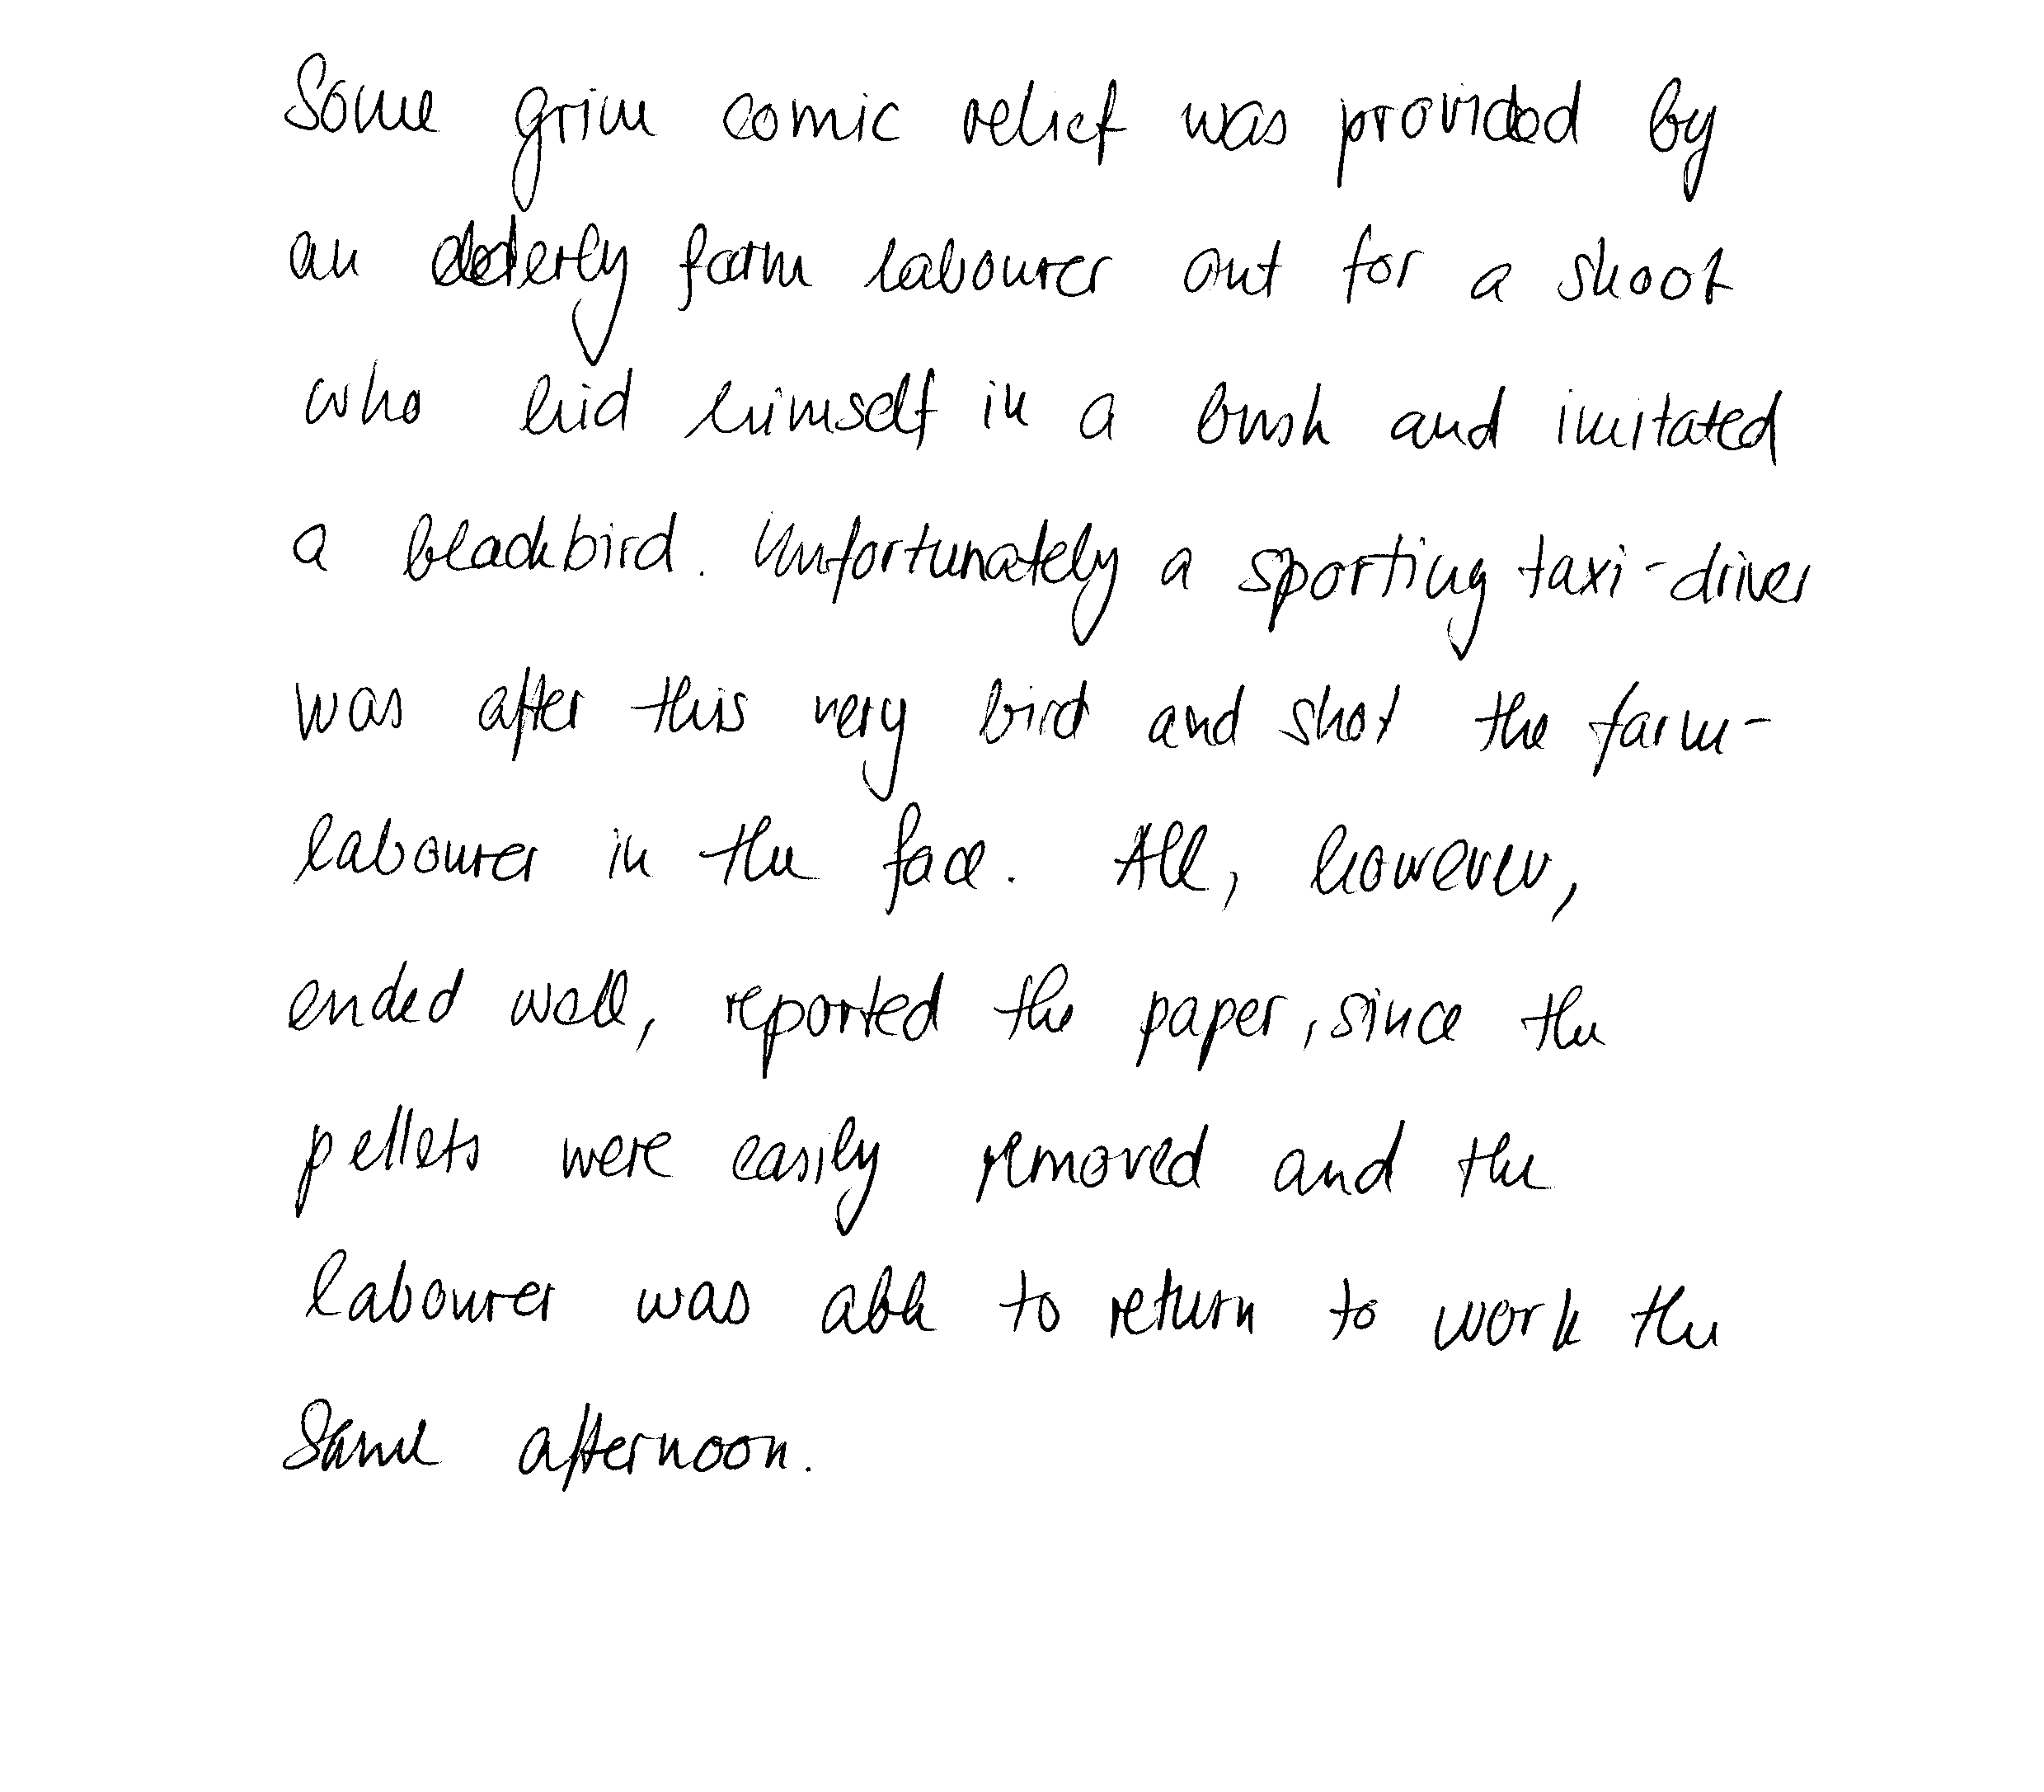 Some grim comic relief was provided by
an elderly farm labourer out for a shoot
who hid himself in a bush and imitated
a blackbird. Unfortunately a sporting taxi-driver
was after this very bird and shot the farm-
labourer in the face. All, however,
ended well, reported the paper, since the
pellets were easily removed and the
labourer was able to return to work the
same afternoon.